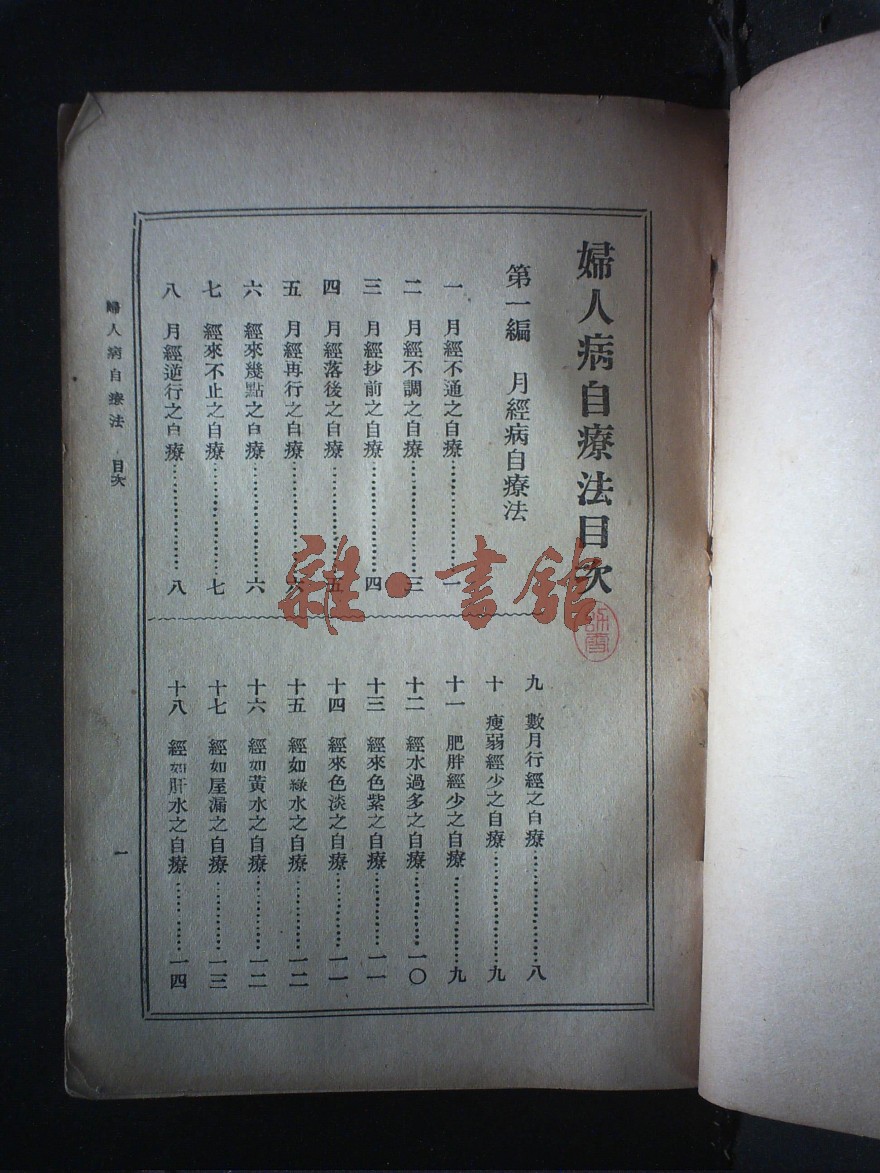 婦人病自療法目次
第一編　月經病自療法
一　月經不通之自療………………一
二　月經不調之自療………………三
三　月經抄前之自療………………四
四　月經落後之自療………………五
五　月經再行之自療………………六
六　經來幾點之自療………………六
七　經來不止之自療………………七
八　月經逆行之自療………………八
九　數月行經之自療………………八
十　瘦弱經少之自療………………九
十一　肥胖經少之自療………………九
十二　經水過多之自療………………一〇
十三　經來色紫之自療………………一一
十四　經來色淡之自療………………一一
十五　經如綠水之自療………………一二
十六　經如黃水之自療………………一二
十七　經如屋漏之自療………………一三
十八　經如肝水之自療………………一四
婦人病自療法　目次
一
雜·書館